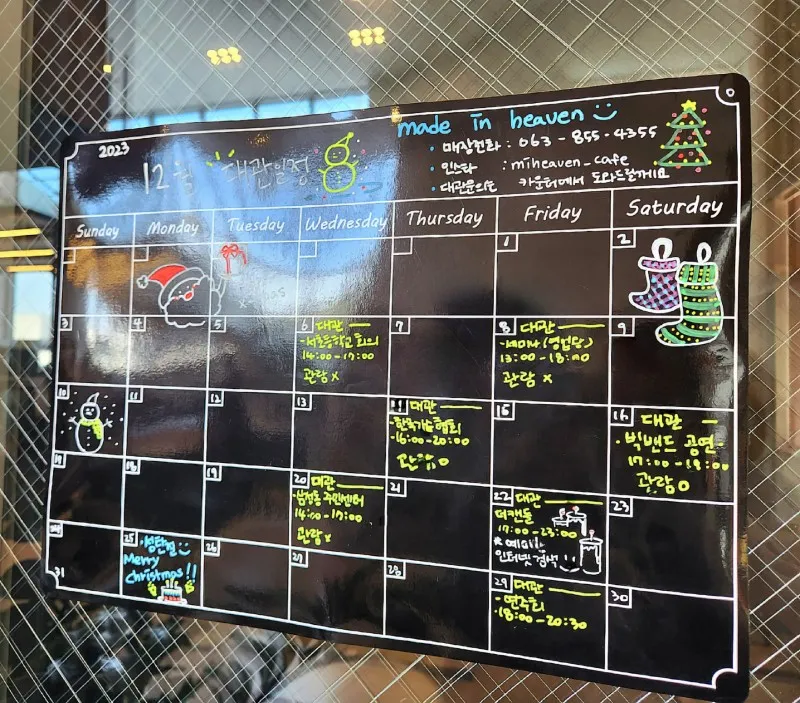 2023
12월 대관일정
made in heaven
• 매장전화 : 063 - 855 - 4355
• 인스타 : miheaven_cafe
• 대관문의는 카운터에서 도와드릴게요
Sunday Monday Tuesday Wednesday Thursday Friday Saturday
1 2
3 4 5 6 7 8 9
대관
-서초등학교 회의
14:00 - 17:00
관람 x
대관
-세미나(영업팀)
13:00 - 18:00
관람 x
10 11 12 13 14 15 16
대관
-한국가수협회
-16:00 - 20:00
관람 o
대관
· 빅밴드 공연
17:00 - 18:00
관람 o
17 18 19 20 21 22 23
대관
-삼성동 주민센터
14:00 - 17:00
관람 x
대관
더캔들
17:00 - 23:00
* 예매는
인터넷 검색
24 25 26 27 28 29 30
·성탄절
Merry
Christmas!!
대관
- 연주회
- 18:00 - 20:30
31